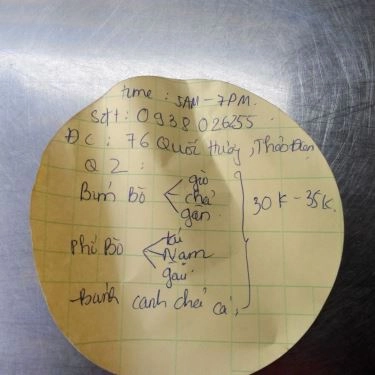 time: 5AM - 7PM.
Sđt: 0938 026255.
ĐC: 76 Quốc Hương, Thảo Điền
Q 2:
giò
Bún Bò chả
gân
30K - 35K.
tái
Phở Bò Nạm
gầu
Bánh canh chả cá,